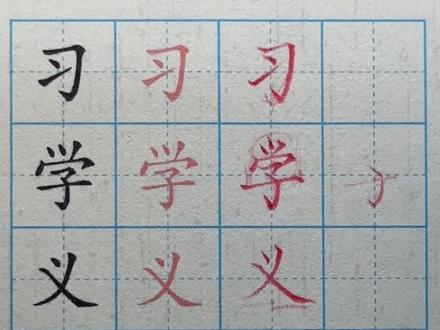 习 习 习
学 学 学
义 义 义